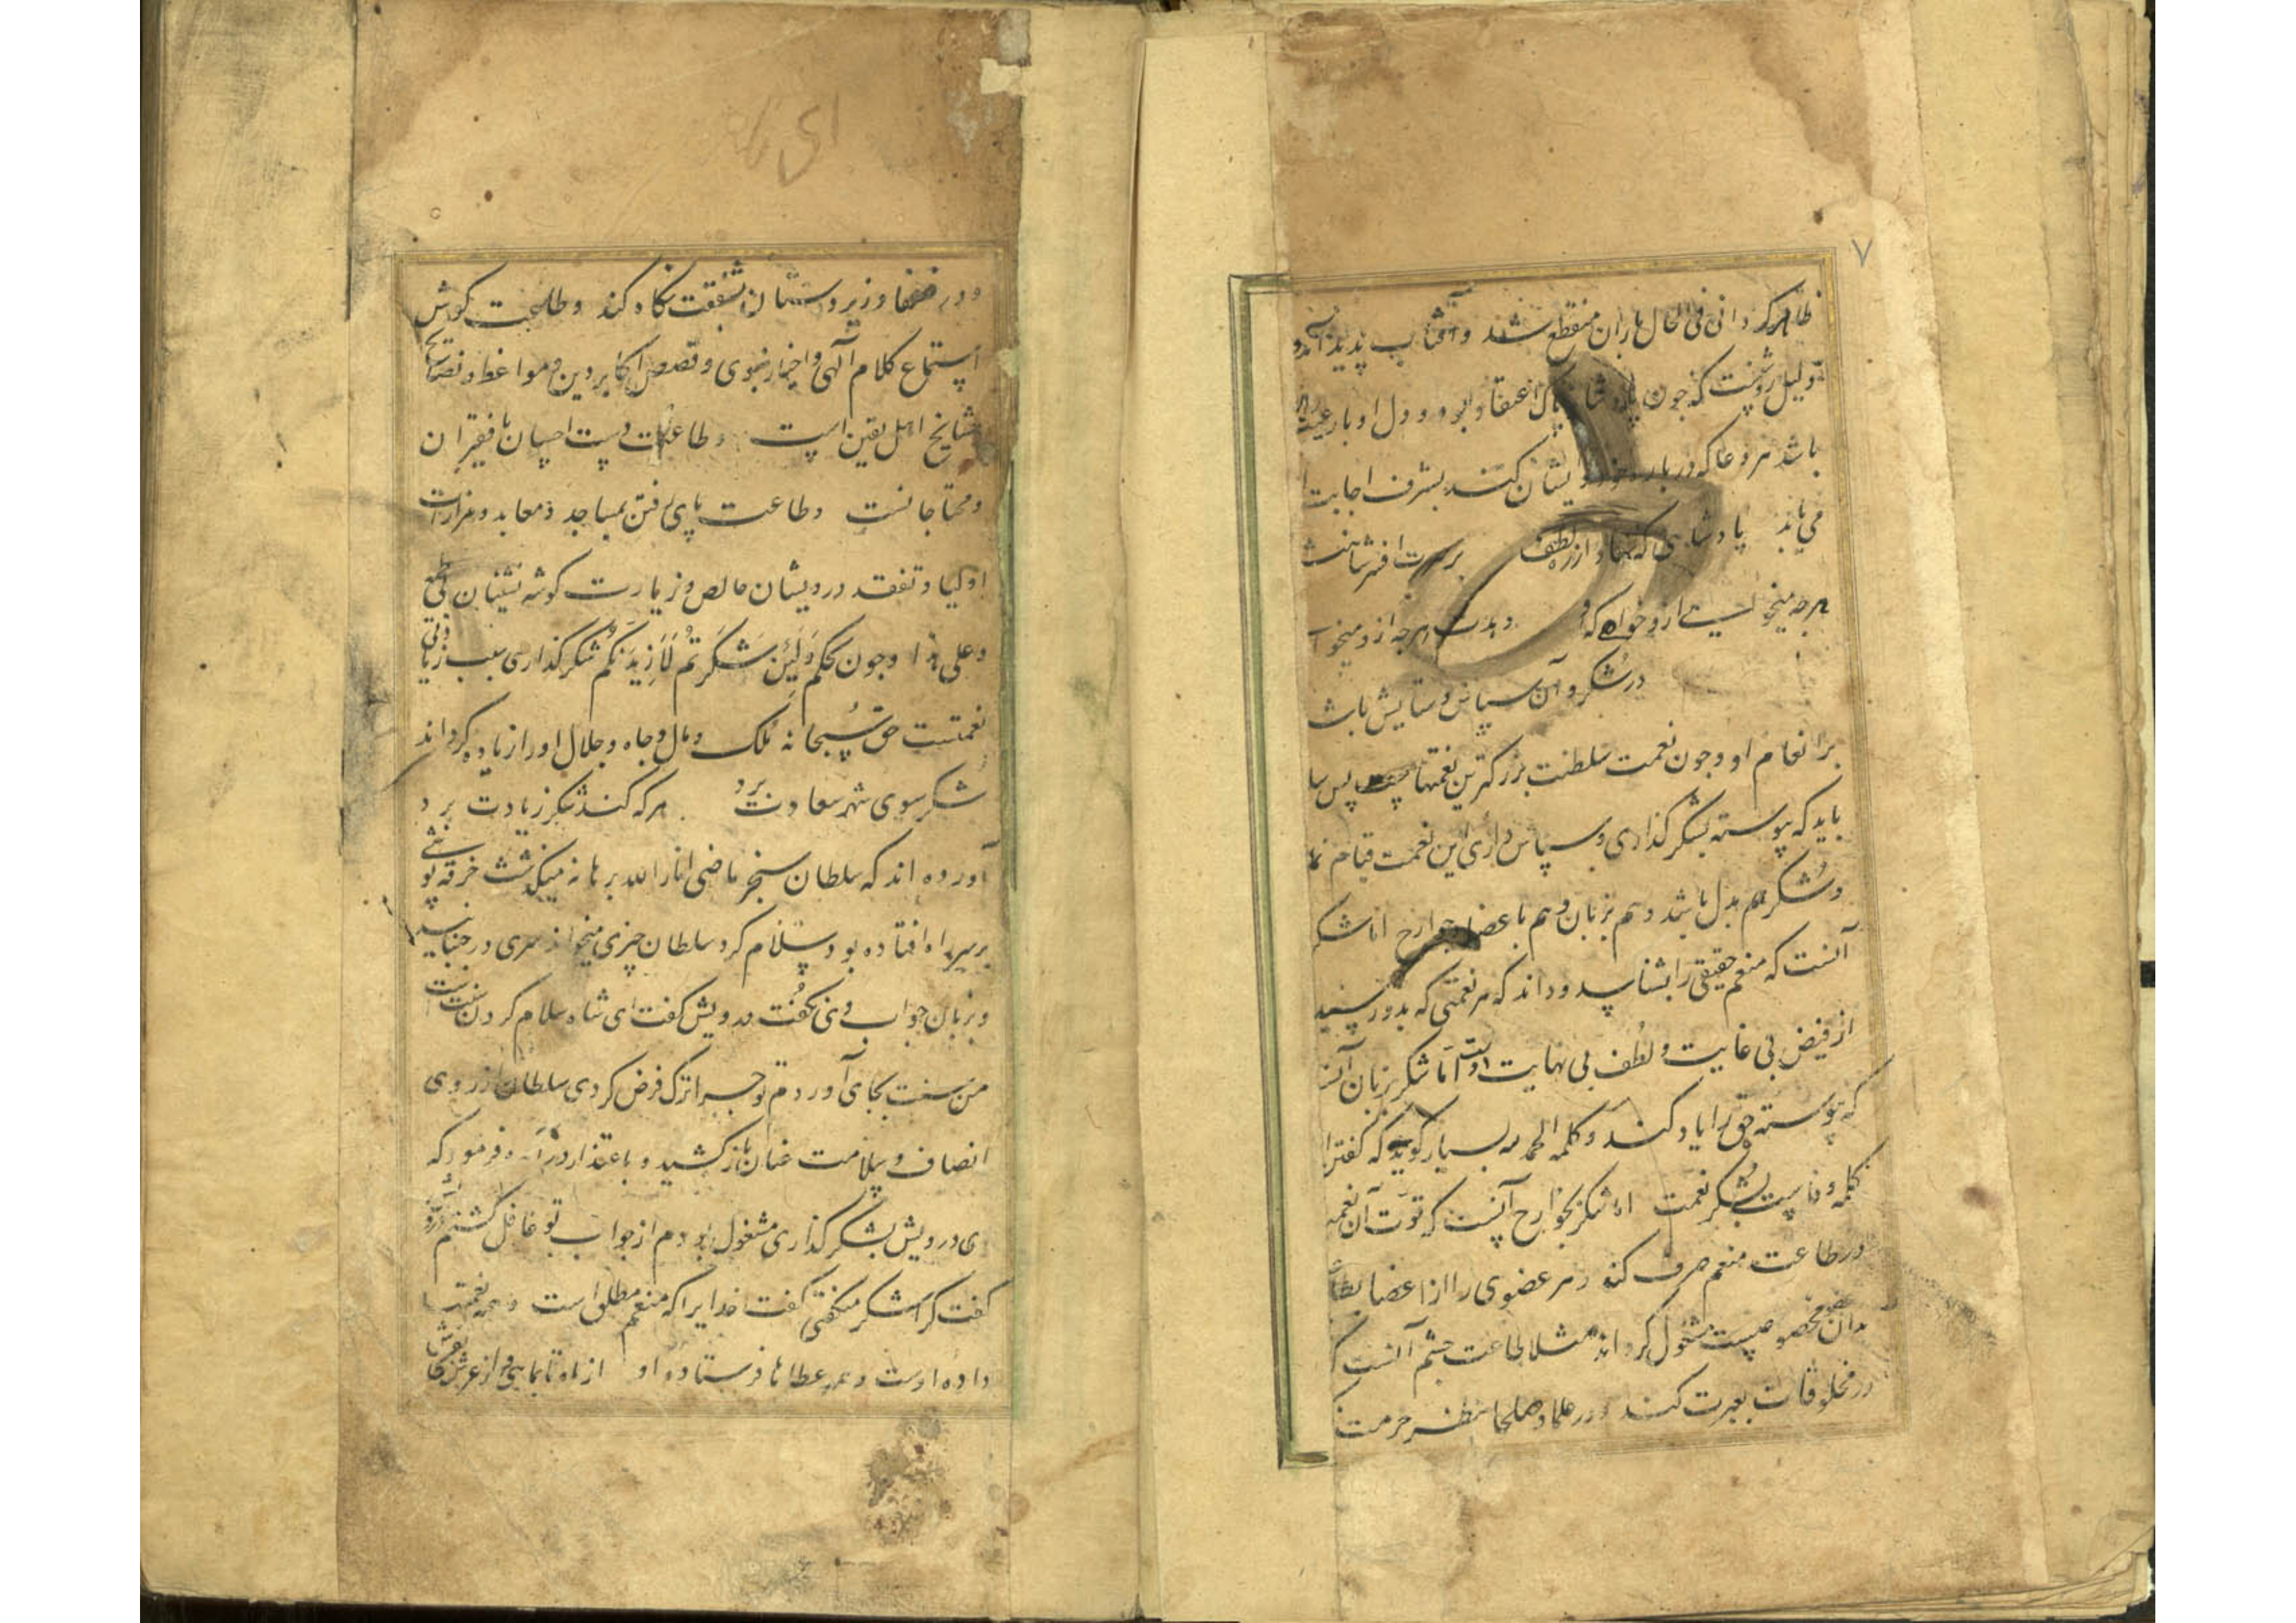 ۷
ظاهر گردانی فی الحال باران منقطع شد و آفتاب پدید آمد و این
دلیل روشنست که چون پادشاه پاک اعتقاد بود و دل او با رعیت راست
باشد هر دعا که در باره خود و ایشان کند بشرف اجابت
می یابد پادشاهی که نهاد از ره لطف بر سرت افسر شاهنشا
هرچه میخواهی ازو خواه که او بدهد هرچه ازو میخوا
در شکر و آن سپاس و ستایش باشد
بر انعام او و چون نعمت سلطنت بزرگترین نعمتهاست پس سا
باید که پیوسته بشکر گذاری و سپاس داری این نعمت قیام نما
و شکر هم بدل باشد و هم بزبان و هم باعضا و جوارح اما شکر
آنست که منعم حقیقی را بشناسد و داند که هر نعمتی که بدو رسید
از فیض بی غایت و لطف بی نهایت اوست اما شکر بزبان آنست
که پیوسته حق را یاد کند و کلمه الحمد لله بسیار گوید که گفتن ا
کلمه وفاست بشکر نعمت اما شکر بجوارح آنست که قوت آن نعمه
در طاعت منعم صرف کند و هر عضوی را از اعضا بطاعت
بدان عضو مخصوصست مشغول گرداند مثلا طاعت چشم آنست که
در مخلوقات بعبرت کند و در علما و صلحا بنظر حرمت
و در ضعفا و زیردستان بشفقت نگاه کند و طاعت گوش
استماع کلام آلهی و اخبار نبوی و قصص اکابر دین و مواعظ و نصایح
مشایخ اهل یقین است و طاعت دست احسان با فقیران
و محتاجانست و طاعت پای رفتن بمساجد و معابد و مزارات
اولیا و تفقد درویشان خالص و زیارت گوشه نشینان بی طمع
و علی هذا و چون بحکم وَلَئِن شَکَرتُم لَاَزِیدَنَّکُم شکر گذاری سبب زیادتی
نعمتست حق سبحانه ملک و مال و جاه و جلال او را زیاده گرداند
شکر سوی شهر سعادت برد هر که کند شکر زیادت برد
آورده اند که سلطان سنجر ماضی انار الله برهانه میگذشت خرقه پوشی
بر سر راه افتاده بود سلام کرد سلطان چیزی میخواند سری در جنبانید
و بزبان جواب وی نگفت درویش گفت ای شاه سلام کردن سنت است
من سنت بجای آوردم تو چرا ترک فرض کردی سلطان از روی
انصاف و سلامت عنان باز کشید و باعتذار درآمد و فرمود که
ای درویش بشکر گذاری مشغول بودم از جواب تو غافل گشتم درویش
گفت کرا شکر میگفتی گفت خدایرا که منعم مطلق است و همه نعمتها
داده اوست و همه عطاها فرستاده او از ماه تا بماهی و از عرش تا بفرش